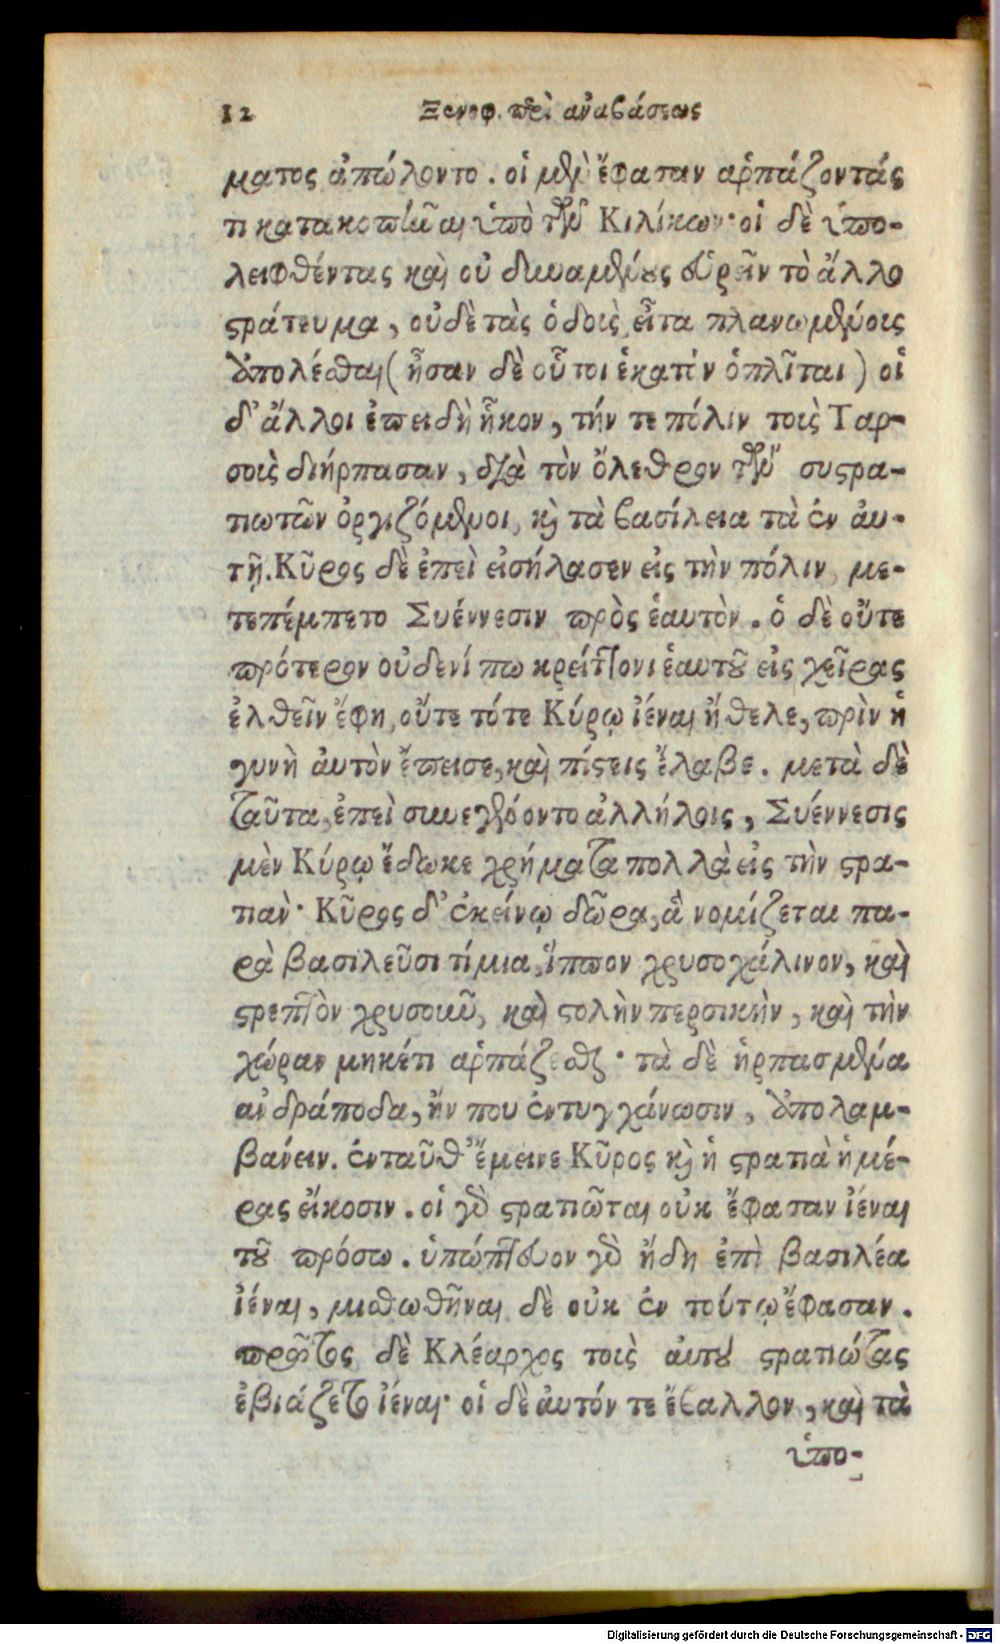 12 Ξενοφ. περὶ ἀναβάσεως
ματος ἀπώλοντο. οἱ μὲν ἔφασαν ἁρπάζοντάς
τι κατακοπῆναι ὑπὸ τῶν Κιλίκων· οἱ δὲ ὑπο-
λειφθέντας καὶ οὐ δυναμένους εὑρεῖν τὸ ἄλλο
στράτευμα, οὐδὲ τὰς ὁδοὺς, εἶτα πλανωμένους
ἀπολέσθαι (ἦσαν δὲ οὗτοι ἑκατὸν ὁπλῖται) οἱ
δ' ἄλλοι ἐπειδὴ ἧκον, τήν τε πόλιν τοὺς Ταρ-
σοὺς διήρπασαν, διὰ τὸν ὄλεθρον τῶν συστρα-
τιωτῶν ὀργιζόμενοι, καὶ τὰ βασίλεια τὰ ἐν αὐ-
τῇ. Κῦρος δὲ ἐπεὶ εἰσήλασεν εἰς τὴν πόλιν, με-
τεπέμπετο Συέννεσιν πρὸς ἑαυτὸν. ὁ δὲ οὔτε
πρότερον οὐδενί πω κρείττονι ἑαυτοῦ εἰς χεῖρας
ἐλθεῖν ἔφη, οὔτε τότε Κύρῳ ἰέναι ἤθελε, πρὶν ἡ
γυνὴ αὐτὸν ἔπεισε, καὶ πίστεις ἔλαβε. μετὰ δὲ
ταῦτα, ἐπεὶ συνεγένοντο ἀλλήλοις, Συέννεσις
μὲν Κύρῳ ἔδωκε χρήματα πολλὰ εἰς τὴν στρα-
τιὰν· Κῦρος δ' ἐκείνῳ δῶρα, ἃ νομίζεται πα-
ρὰ βασιλεῦσι τίμια, ἵππον χρυσοχάλινον, καὶ
στρεπτὸν χρυσοῦν, καὶ στολὴν περσικὴν, καὶ τὴν
χώραν μηκέτι ἁρπάζεσθαι· τὰ δὲ ἡρπασμένα
ἀνδράποδα, ἤν που ἐντυγχάνωσιν, ἀπολαμ-
βάνειν. ἐνταῦθ' ἔμεινε Κῦρος καὶ ἡ στρατιὰ ἡμέ-
ρας εἴκοσιν. οἱ γὰρ στρατιῶται οὐκ ἔφασαν ἰέναι
τοῦ πρόσω. ὑπώπτευον γὰρ ἤδη ἐπὶ βασιλέα
ἰέναι, μισθωθῆναι δὲ οὐκ ἐν τούτῳ ἔφασαν.
πρῶτος δὲ Κλέαρχος τοὺς αὑτοῦ στρατιώτας
ἐβιάζετο ἰέναι· οἱ δὲ αὐτόν τε ἔβαλλον, καὶ τὰ
ὑπο-
Digitalisierung gefördert durch die Deutsche Forschungsgemeinschaft - DFG